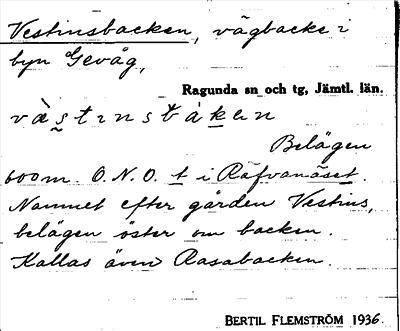 Vestinsbacken, vägbacke i
byn Gevåg,
Ragunda sn och tg, Jämtl. län.
Belägen
600 m. O.N.O. t i Räfvanäset.
Namnet efter gården Vestins,
belägen öster om backen.
Kallas även Rasabacken.
BERTIL FLEMSTRÖM 1936.